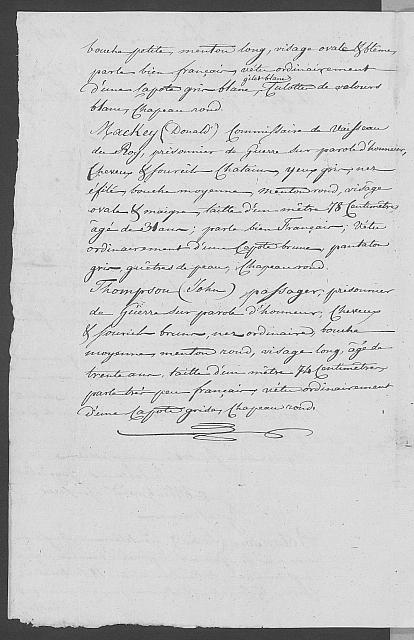 bouche petite, menton long, visage ovale & blême,
parle bien français, vêtu ordinairement
gilet blanc
d'une Capote gris blanc, Culotte de valours
blanc, Chapeau rond.
Mackey (Donald) Commissaire de Vaisseau
du Roy, prisonnier de Guerre sur parole d'honneur,
Cheveux & sourcils Chatains, yeux gris, nez
éfilé, bouche moyenne, menton rond, visage
ovale & maigre, taille d'un mêtre 78 Centimêtres
âgé de ans; parle bien Français; Vêtu
ordinairement d'une Capote brune, pantalon
gris, guêtres de peau, Chapeau rond.
Thompson (John) passager, prisonnier
de Guerre sur parole d'honneur, Cheveux
& sourcils bruns, nez ordinaire, bouche
moyenne, menton rond, visage long, âgé de
trente ans, taille d'un mêtre 74 Centimêtres,
parle très peu français, vêtu ordinairement
d'une Capote grise, Chapeau rond.